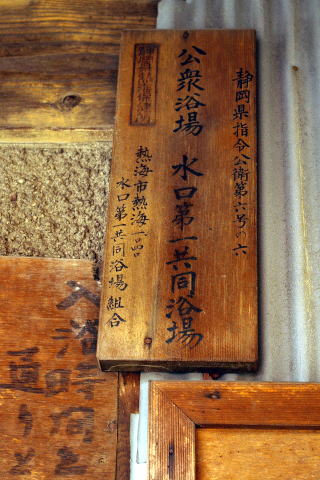 静岡県指令公衛第六号の六
公衆浴場 水口第一共同浴場
熱海市熱海一四四〇
水口第一共同浴場組合
入浴時間を